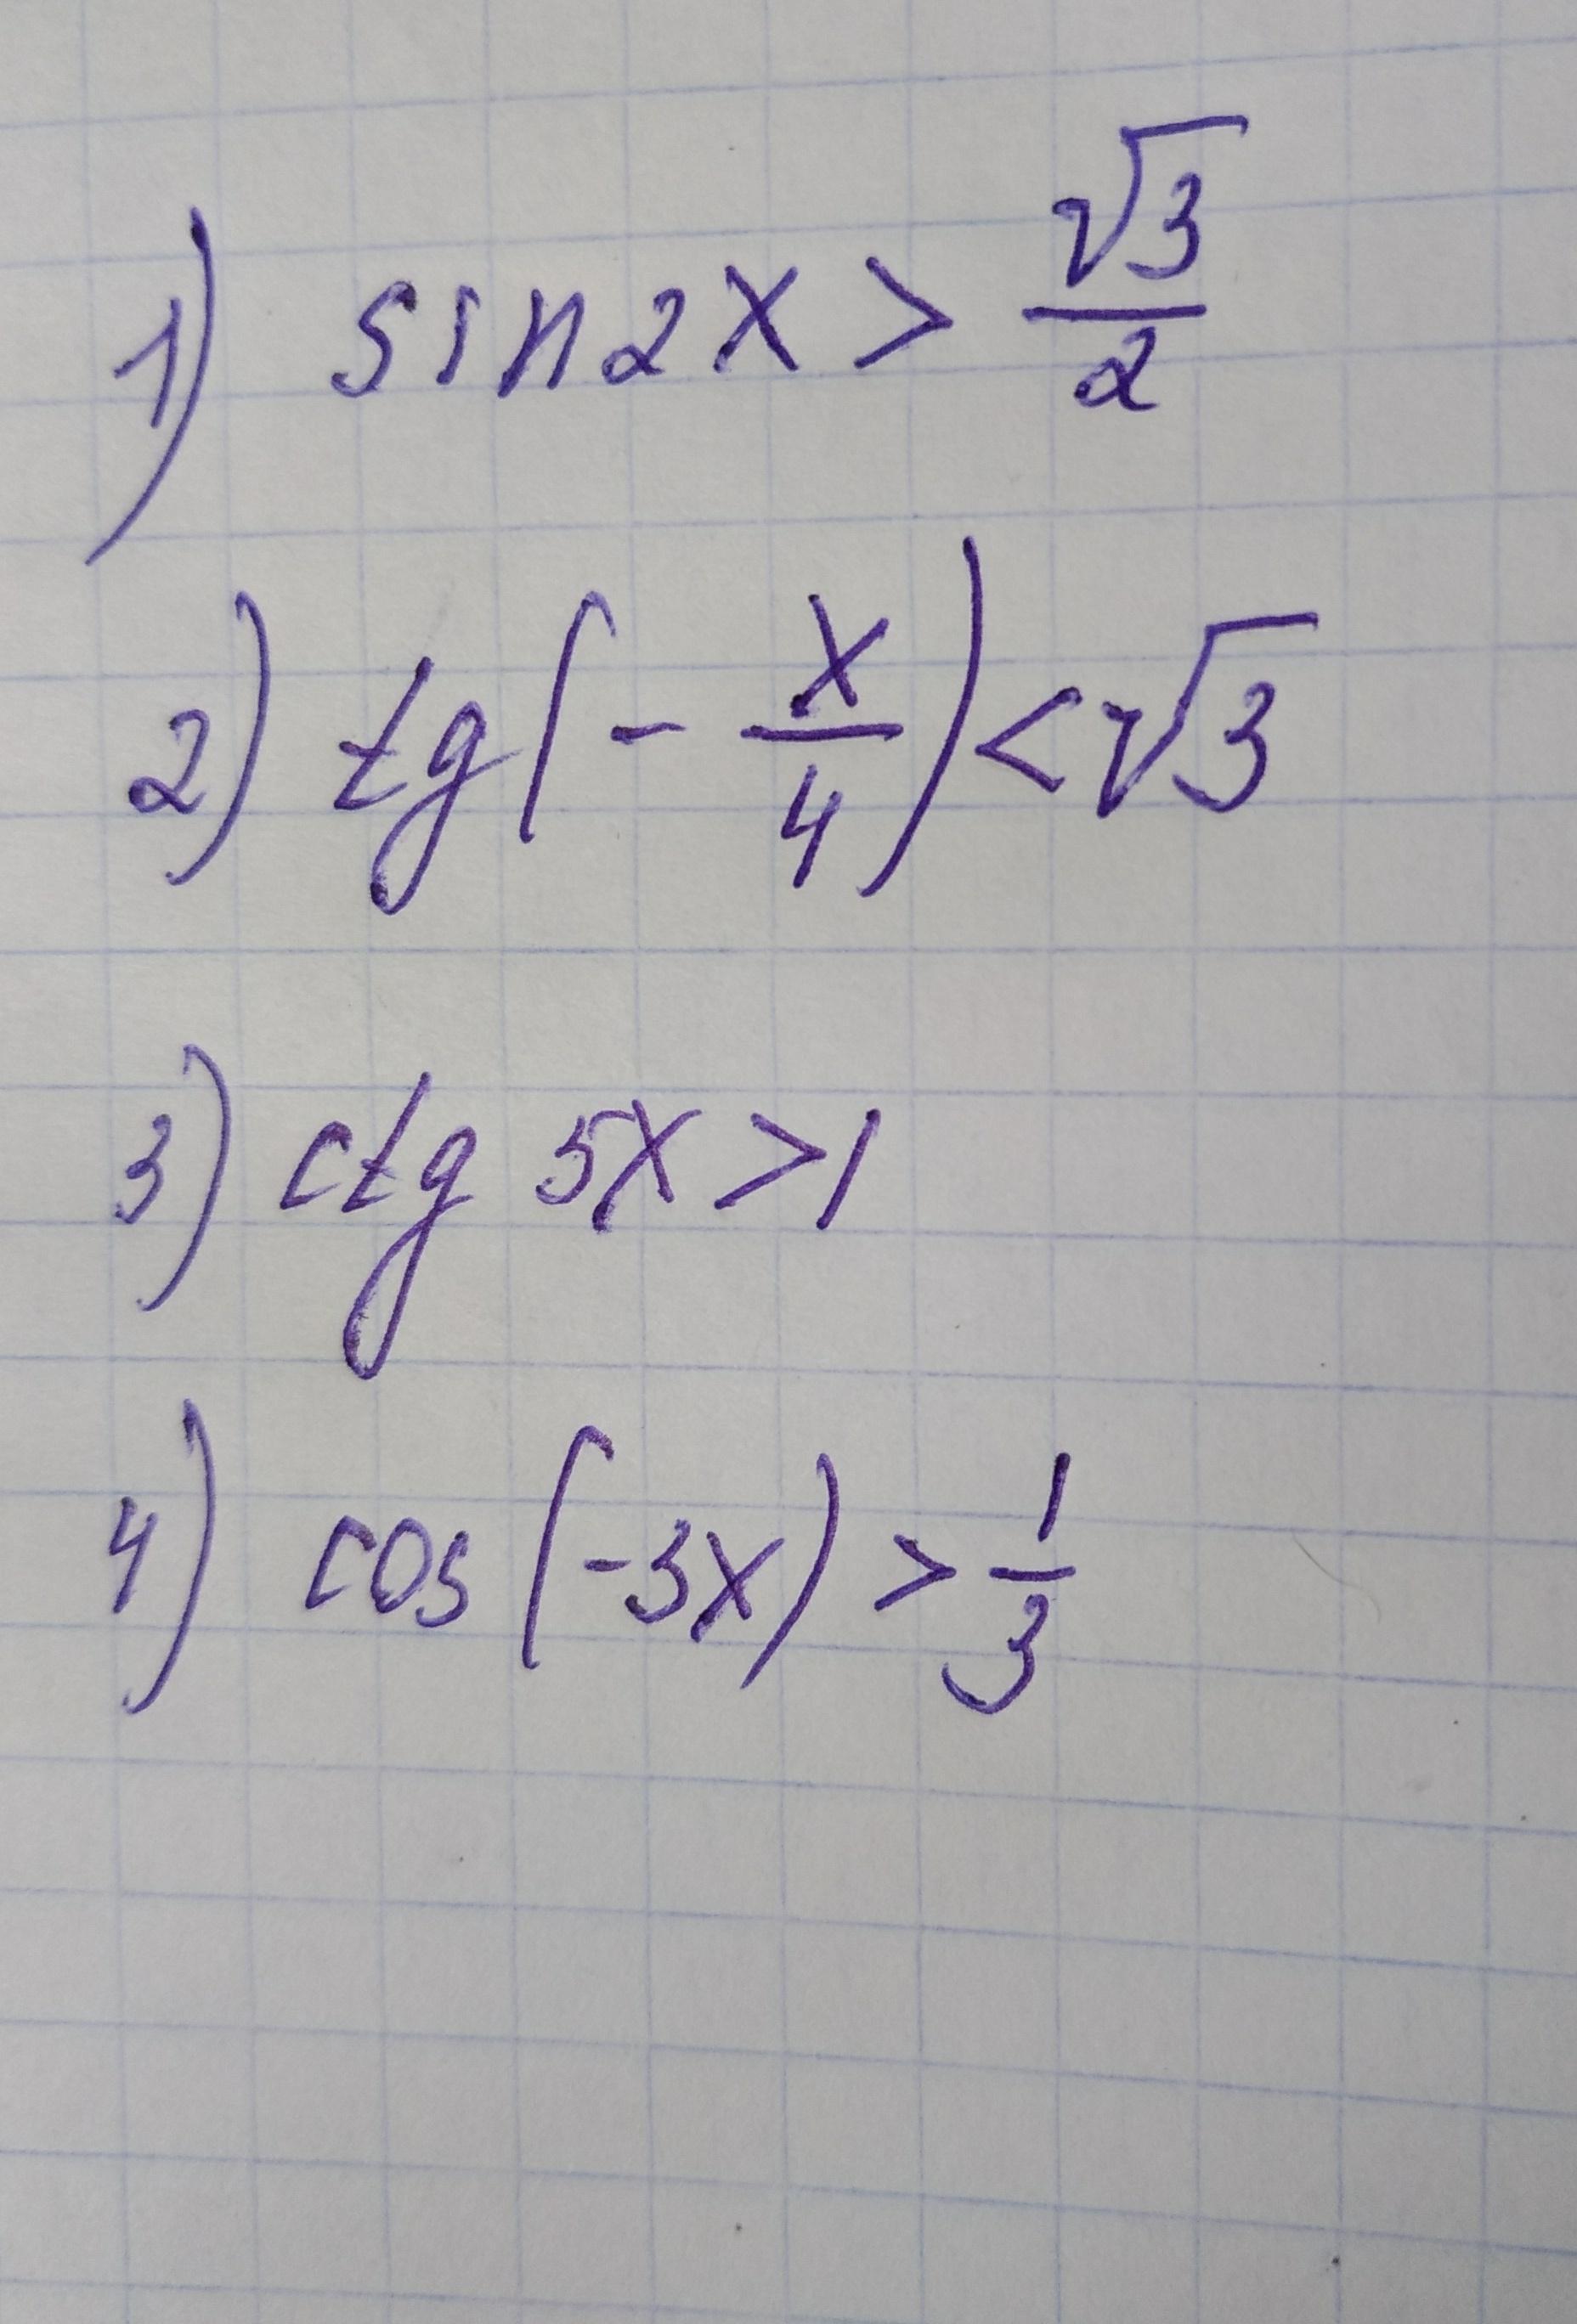 1) sin2x > √3/2
2) tg(-x/4) < √3
3) ctg 5x > 1
4) cos(-3x) > 1/3